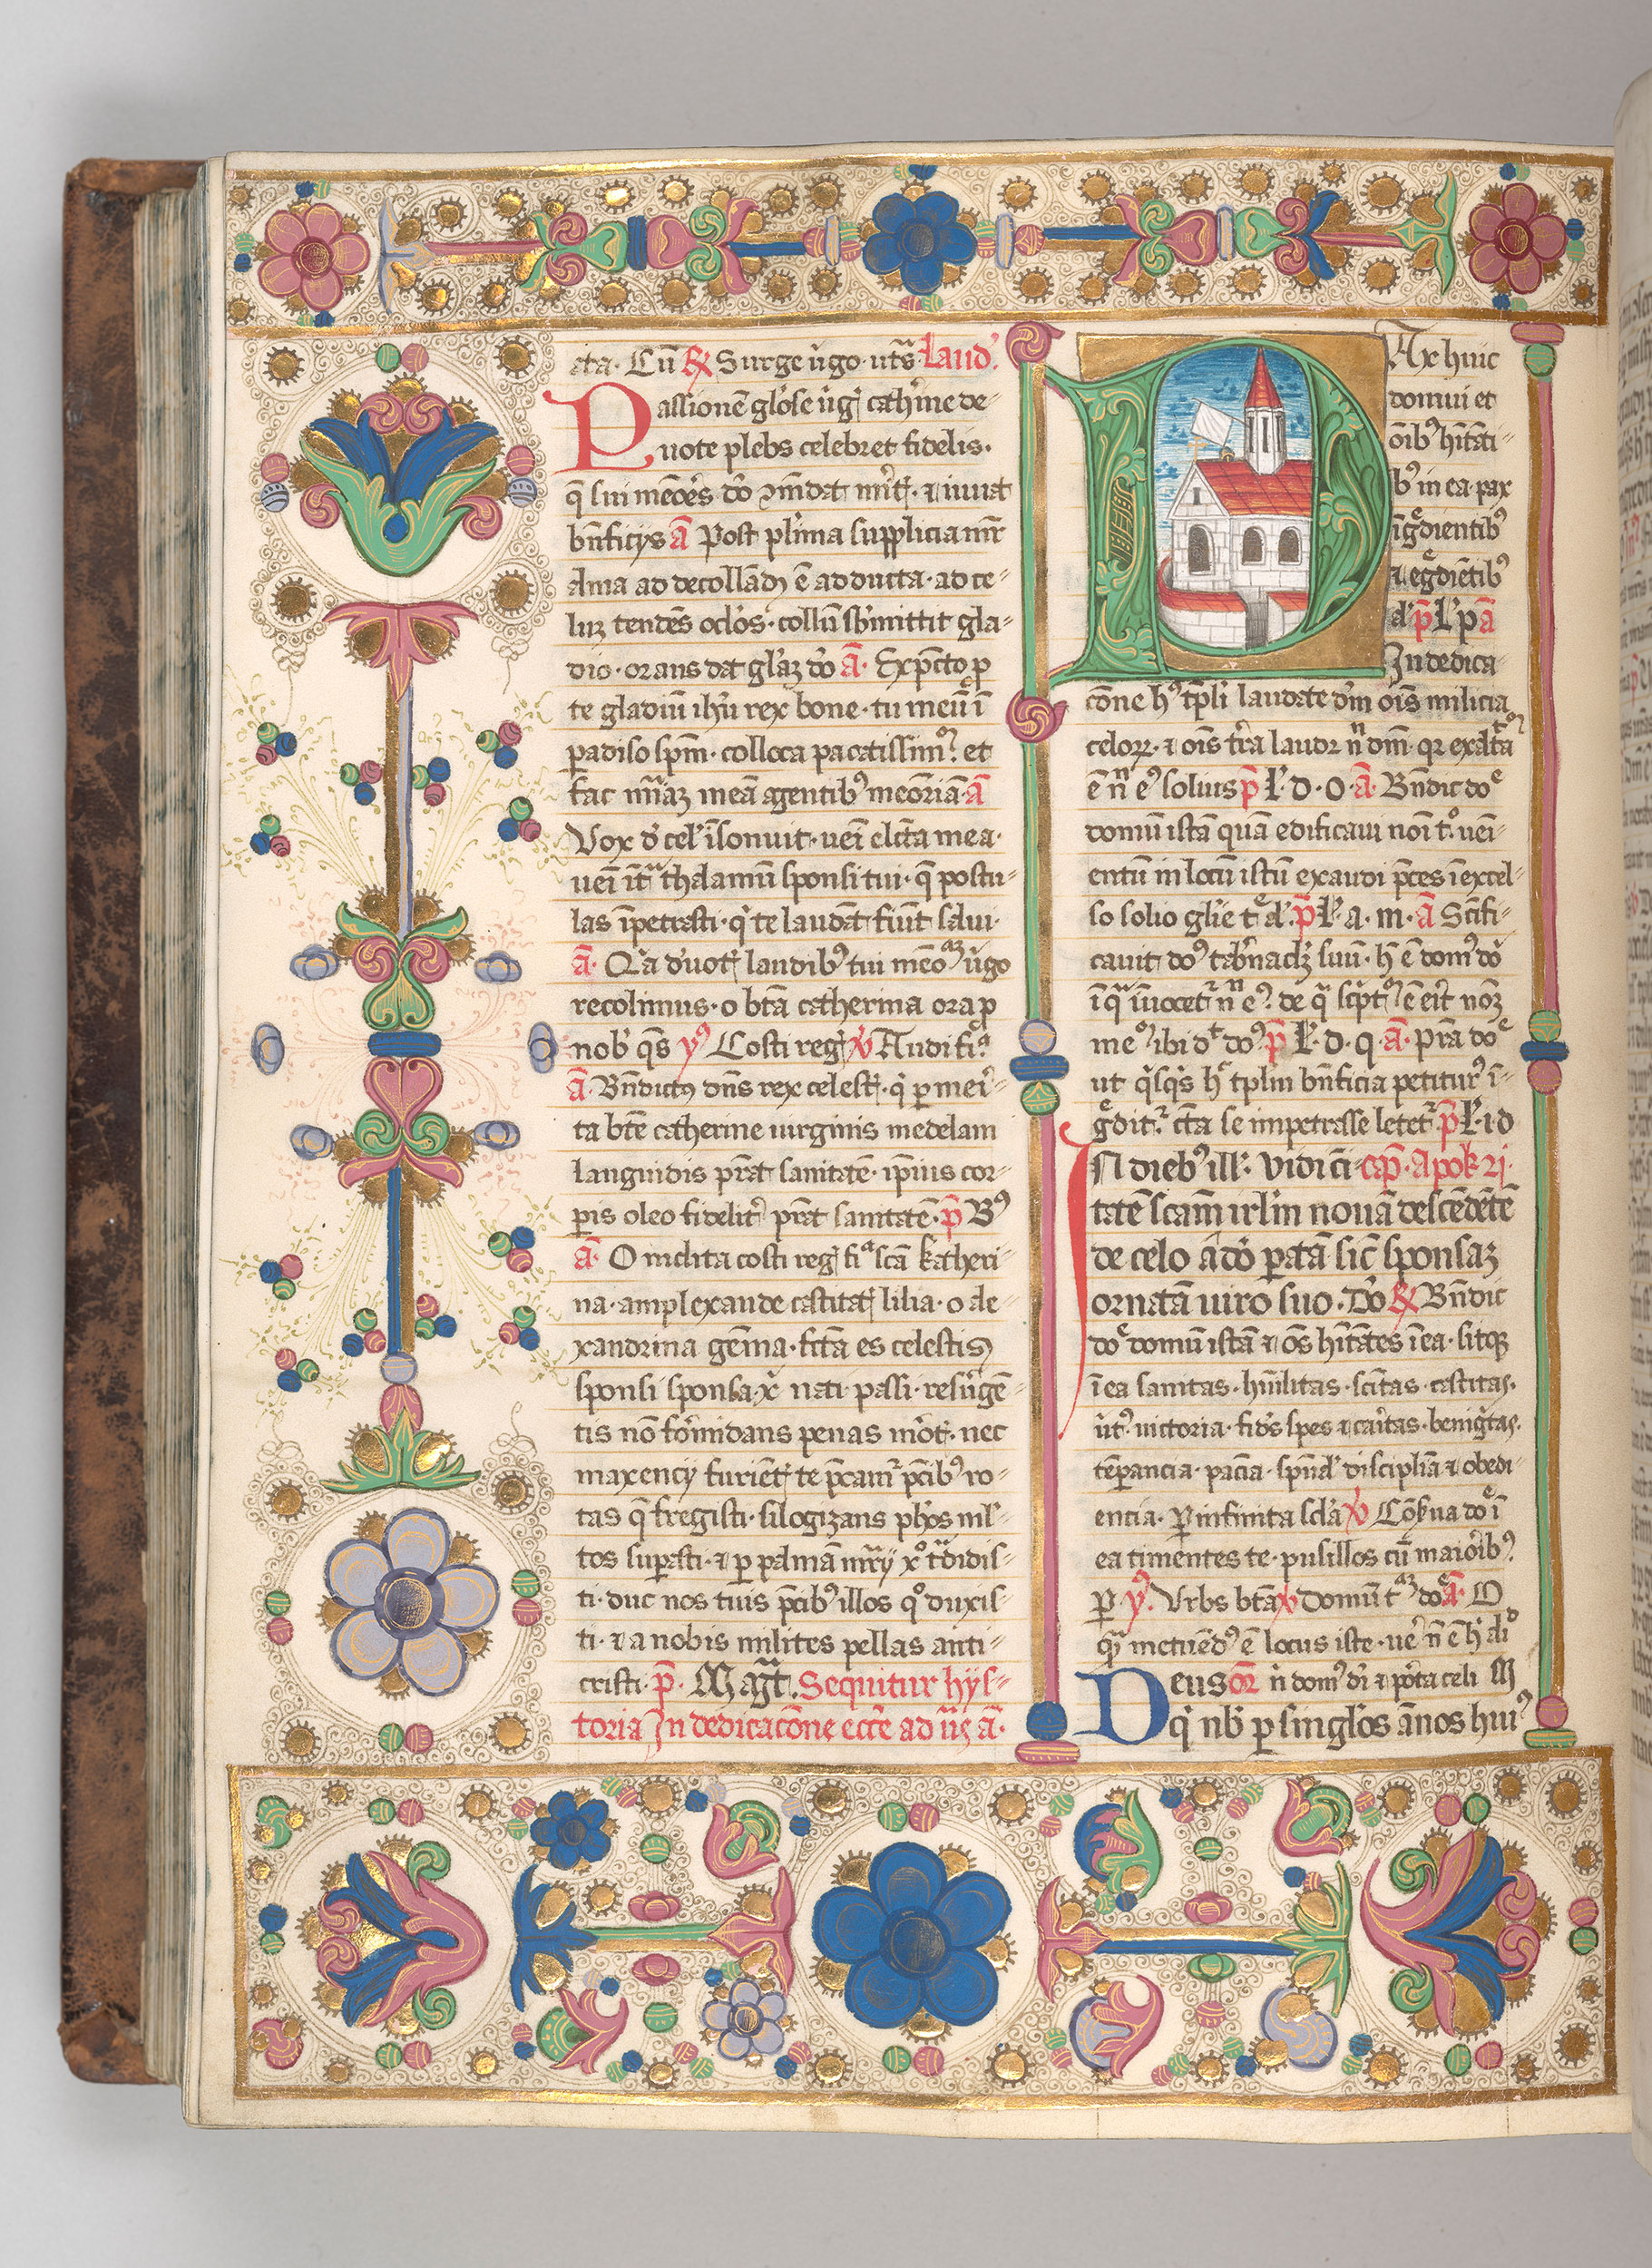 ata. Cū ℟ Surge v̇go. ut̄s. Laud'.
Passionē glōse v̇gꝭ cath'ine de-
uote plebs celebret fidelis.
q̄ sui
bn̄ficijs ā Post pl'ima supplicia mr̄
alma ad decollādū ē adducta. ad ce-
luꝫ tendēs oclōs. collū sb'mittit gla-
dio. orans dat gl'aꝫ dō ā. Expc̄to ꝓ
te gladiū ih'u rex bone. tu meū ī
padiso sp̄m. colloca pacatissimoꝝ et
fac mīaꝫ meā agentibꝰ meōriā. ā
Vox d' cel' īsonuit. ueī elc̄ta mea.
ueī ītᵃ thalamū sponsi tui. q̄ postu-
las īpetrasti. q' te laudāt fiūt salui.
ā. Q'a d'uotꝭ laudibꝰ tui meōᵃꝫ v̇go
recolimus. o btā catherina ora ꝓ
nob' q̄s ẏꝰ Costi regꝭ ꝟ Audi fiᵃ
ā. Bn̄dictꝰ dn̄s rex celestꝭ. q' ꝑ mer'-
ta bt̄e catherine uirginis medelam
languidis pr̄at sanitatē. ip̄ius cor-
ꝑis oleo fidelit' pr̄at sanitatē. p̄ Bꝰ
ā. O inclita costi regꝭ fiᵃ scā katheri-
na. amplexande castitatꝭ lilia. o ale-
xandrina gēma. fc̄ta es celestis
sponsi sponsa. x̄ nati passi. resūgē-
tis nō fōrmidans penas mōrt'. nec
maxencij furiētꝭ te p̄camr̄ p̄cibꝰ ro-
tas q̄ fregisti. silogizans ph'os ml'-
tos suꝑasti. ⁊ ꝑ palmā mr̄ij xº t̄didis-
ti. duc nos tuis p̄cibꝰ illos qº duxis-
ti. ⁊ a nobis milites pellas anti-
cristi. p̄. Magᵃt. Sequitur hys-
toria In dedicacōne ecc̄e ad v̄ꝫ ā.
PAx huic
domui et
ōibꝰ hītāti-
bꝰ in ea. pax
īg'dientibꝰ
⁊ eg'diētibꝰ
d' p̄ L' p ā
In dedica-
cōne hꝰ tp̄li laudate dm̄ ōis milicia
celoꝝ. ⁊ ōis t'ra laudꝫ n̄ dm̄. qꝫ exaltᵃ
ē n̄ eꝰ soluis p̄ L'. d. o. ā. Bn̄dic doᵉ
domū istā quā edificaui noī tº. uei-
entū in locū istū exaudi p̄ces ī excel-
so solio gl'ie t' d' p̄ L'. a. m. ā Sc̄ifi-
cauit doꝰ tab'naclꝫ suū. h' ē domꝰ dī
ī qᵃ īuocet' n̄ eꝰ. de qᵃ sc̄ptº ē eīt noīꝫ
meº ibi d' doꝰ p̄ L'. d. q. ā. Pr̄a doᵉ
ut q'sq's h' tplm̄ bn̄ficia petiturꝰ ī-
g'dit'. cc̄ta se impetrasse letet' p̄ L'. i d
IN diebꝰ ill'. vidi ci- cap̄. Apok xxj.
tatē scām irl'm nouā descēdētē
de celo ā dō patā sic̄ sponsaꝫ
ornatā uiro suo. Dō ℟ Bn̄dic
doᵉ domū istā ⁊ os̄ hītātes ī ea. sitqꝫ
ī ea sanitas. hūilitas. sc̄itas. castitas.
v̇tꝰ. uictoria. fid'es spes ⁊ ca'itas. benig'tas.
tēꝑancia. pacīa. sp̄ual' disciplīa ⁊ obedi-
encia. P̄ infinita sc̄la ꝟ Cōs'ua doᵉ ī
ea timentes te. pusillos cū maiōribꝰ.
ꝑ ẏ. Vrbs btā ꝟ Domū tᵃꝫ doᵉ ā. O
qᵃ metuēdꝰ ē locus iste. ue' n̄ ē h' aliº
Deus or̄ n̄ domꝰ dī ⁊ pōrta celi M
q' nb' ꝑ singl'os ānos huiꝰ